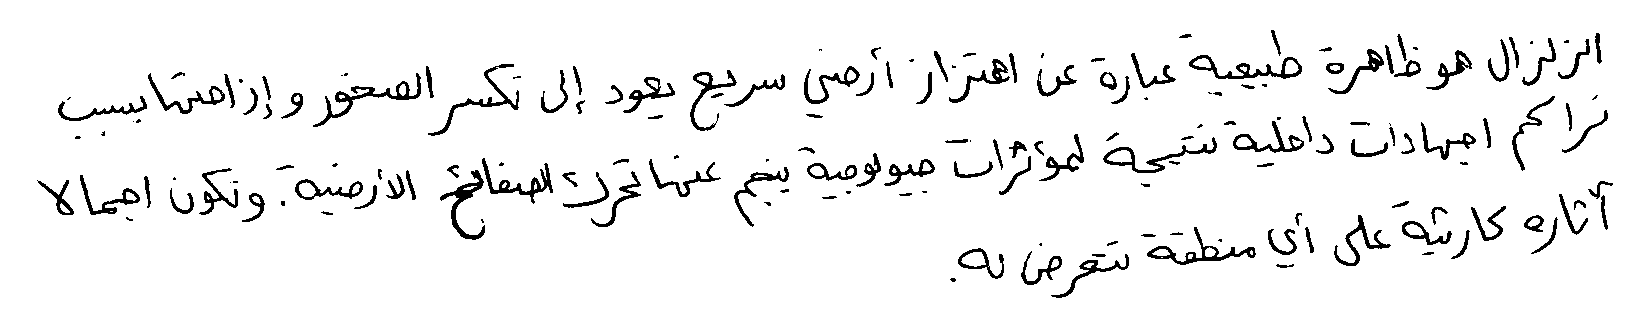 الزلزال هو ظاهرة طبيعية عبارة عن اهتزاز أرضي سريع يعود إلى تكسر الصخور وإزاحتها بسبب
تراكم اجهادات داخلية نتيجة لمؤثرات جيولوجية ينجم عنها تحرك الصفائح الأرضية. وتكون اجمالا
أثاره كارثية على أي منطقة تتعرض له.